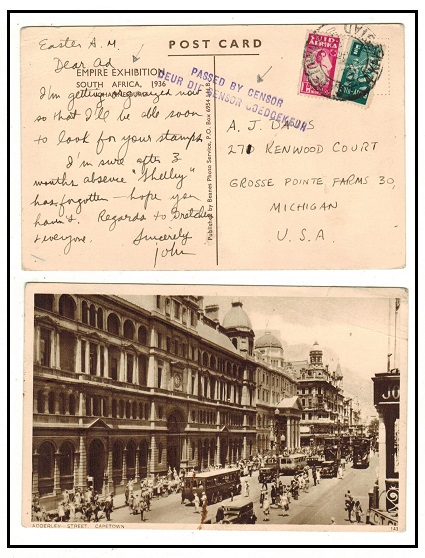 Easter A.M.
Dear Ad
POST CARD
EMPIRE EXHIBITION
SOUTH AFRICA, 1936
PASSED BY CENSOR
DEUR DIE SENSOR GOEDGEKEUR
I'm getting organized now
so that I'll be able soon
to look for your stamps.
I'm sure after 3
months absence "Shelley"
has forgotten - hope you
haven't. Regards to Gretchen
& everyone. Sincerely
John
Published by Beanes Photo Service, P.O. Box 6954
SUID
AFRIKA
A. J. DAVIS
271 KENWOOD COURT
GROSSE POINTE FARMS 30,
MICHIGAN
U.S.A.
JU
ADDERLEY STREET, CAPETOWN
143